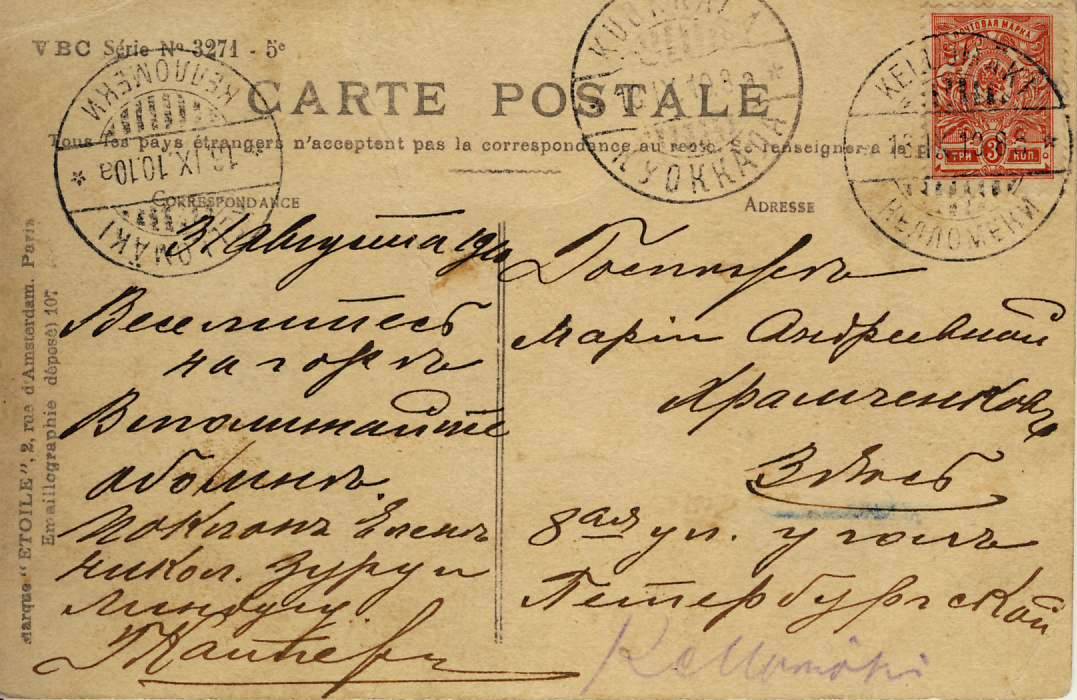 VBC Série Nº 3271 - 5e
CARTE POSTALE
Tous les pays étrangers n'acceptent pas la correspondance au recto. Se renseigner à la
CORRESPONDANCE
ADRESSE
Marque "ETOILE", 2, rue d'Amsterdam. Paris
Emaillographie déposé) 107
KELLOMÄKI
16.IX.10.10a
КЕЛЛОМЕКИ
KUOKKALA
IX.10.8a
КУОККАЛА
KELLOMÄKI
IX.10.8
КЕЛЛОМЕКИ
ПОЧТОВАЯ МАРКА
ТРИ 3 КОП.
31 Августа 1910
Веселитесь
на горѣ
Вспоминайте
обо мнѣ.
Поклонъ Еленѣ
Никол. Зуру и
Госпожѣ
Маріи Андреевной
Храмченковой
Здѣсь
8ая ул. уголъ
Петербургской
Kellomäki